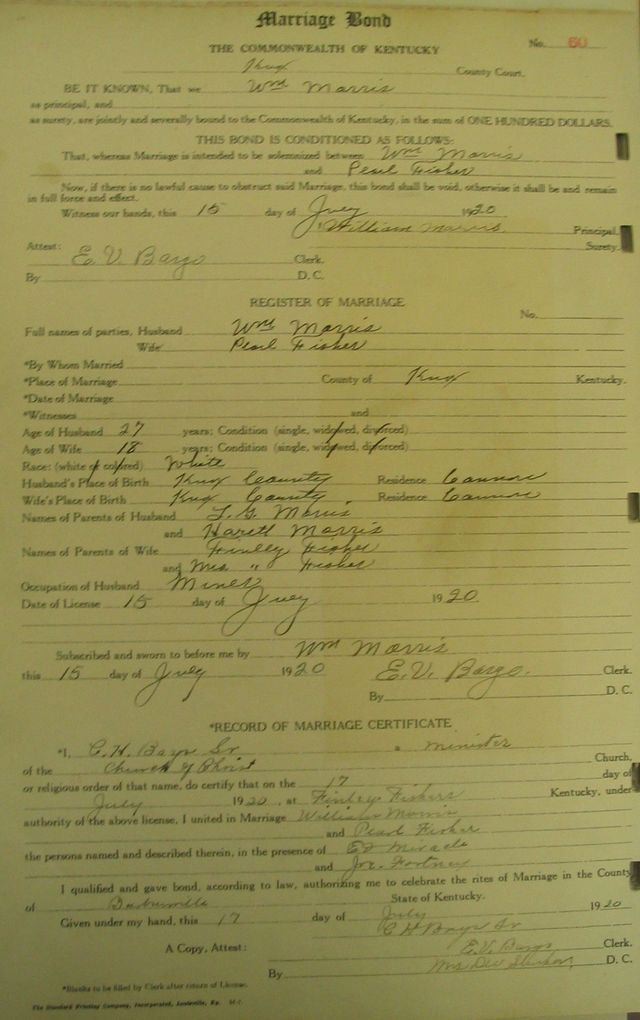 Marriage Bond
THE COMMONWEALTH OF KENTUCKY
No. 60
Knox County Court.
BE IT KNOWN, That we Wm Morris
as principal, and
as surety, are jointly and severally bound to the Commonwealth of Kentucky, in the sum of ONE HUNDRED DOLLARS.
THIS BOND IS CONDITIONED AS FOLLOWS:
That, whereas Marriage is intended to be solemnized between Wm Morris
and Pearl Fisher
Now, if there is no lawful cause to obstruct said Marriage, this bond shall be void, otherwise it shall be and remain
in full force and effect.
Witness our hands, this 15 day of July 1920
William Morris Principal.
Surety.
Attest:
E. V. Bargo Clerk.
By D. C.
REGISTER OF MARRIAGE
No.
Full names of parties, Husband Wm Morris
Wife Pearl Fisher
*By Whom Married
*Place of Marriage County of Knox Kentucky.
*Date of Marriage
*Witnesses and
Age of Husband 27 years; Condition (single, widowed, divorced)
Age of Wife 18 years; Condition (single, widowed, divorced)
Race: (white or colored) White
Husband's Place of Birth Knox County Residence Cannon
Wife's Place of Birth Knox County Residence Cannon
Names of Parents of Husband Morris
and Morris
Names of Parents of Wife Fisher
and Mrs " Fisher
Occupation of Husband Miner
Date of License 15 day of July 1920
Subscribed and sworn to before me by Wm Morris
this 15 day of July 1920 E. V. Bargo. Clerk.
By D. C.
*RECORD OF MARRIAGE CERTIFICATE
*I, C. H. Bays Sr a minister
of the Church of Christ Church,
or religious order of that name, do certify that on the 17 day of
July 1920, at Finley Fishers Kentucky, under
authority of the above license, I united in Marriage William Morris
and Pearl Fisher
the persons named and described therein, in the presence of Ed Miracle
and Joe Fortney
I qualified and gave bond, according to law, authorizing me to celebrate the rites of Marriage in the County
of Barbourville State of Kentucky.
Given under my hand, this 17 day of July 1920
C H Bays Sr
A Copy, Attest: E. V. Bargo Clerk.
By Mrs D. C.
*Blanks to be filled by Clerk after return of License.
The Standard Printing Company, Incorporated, Louisville, Ky.